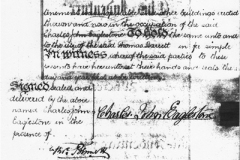 and other buildings erected
thereon and now in the occupation of the said
Charles John Eaglestone To Hold the same unto and
to the use of the said Thomas Barrett in fee simple
In Witness whereof the said parties to these
presents have hereunto set their hands and seals the
Signed sealed and
delivered by the above
named Charles John
Eaglestone in the
presence of
Charles John Eaglestone